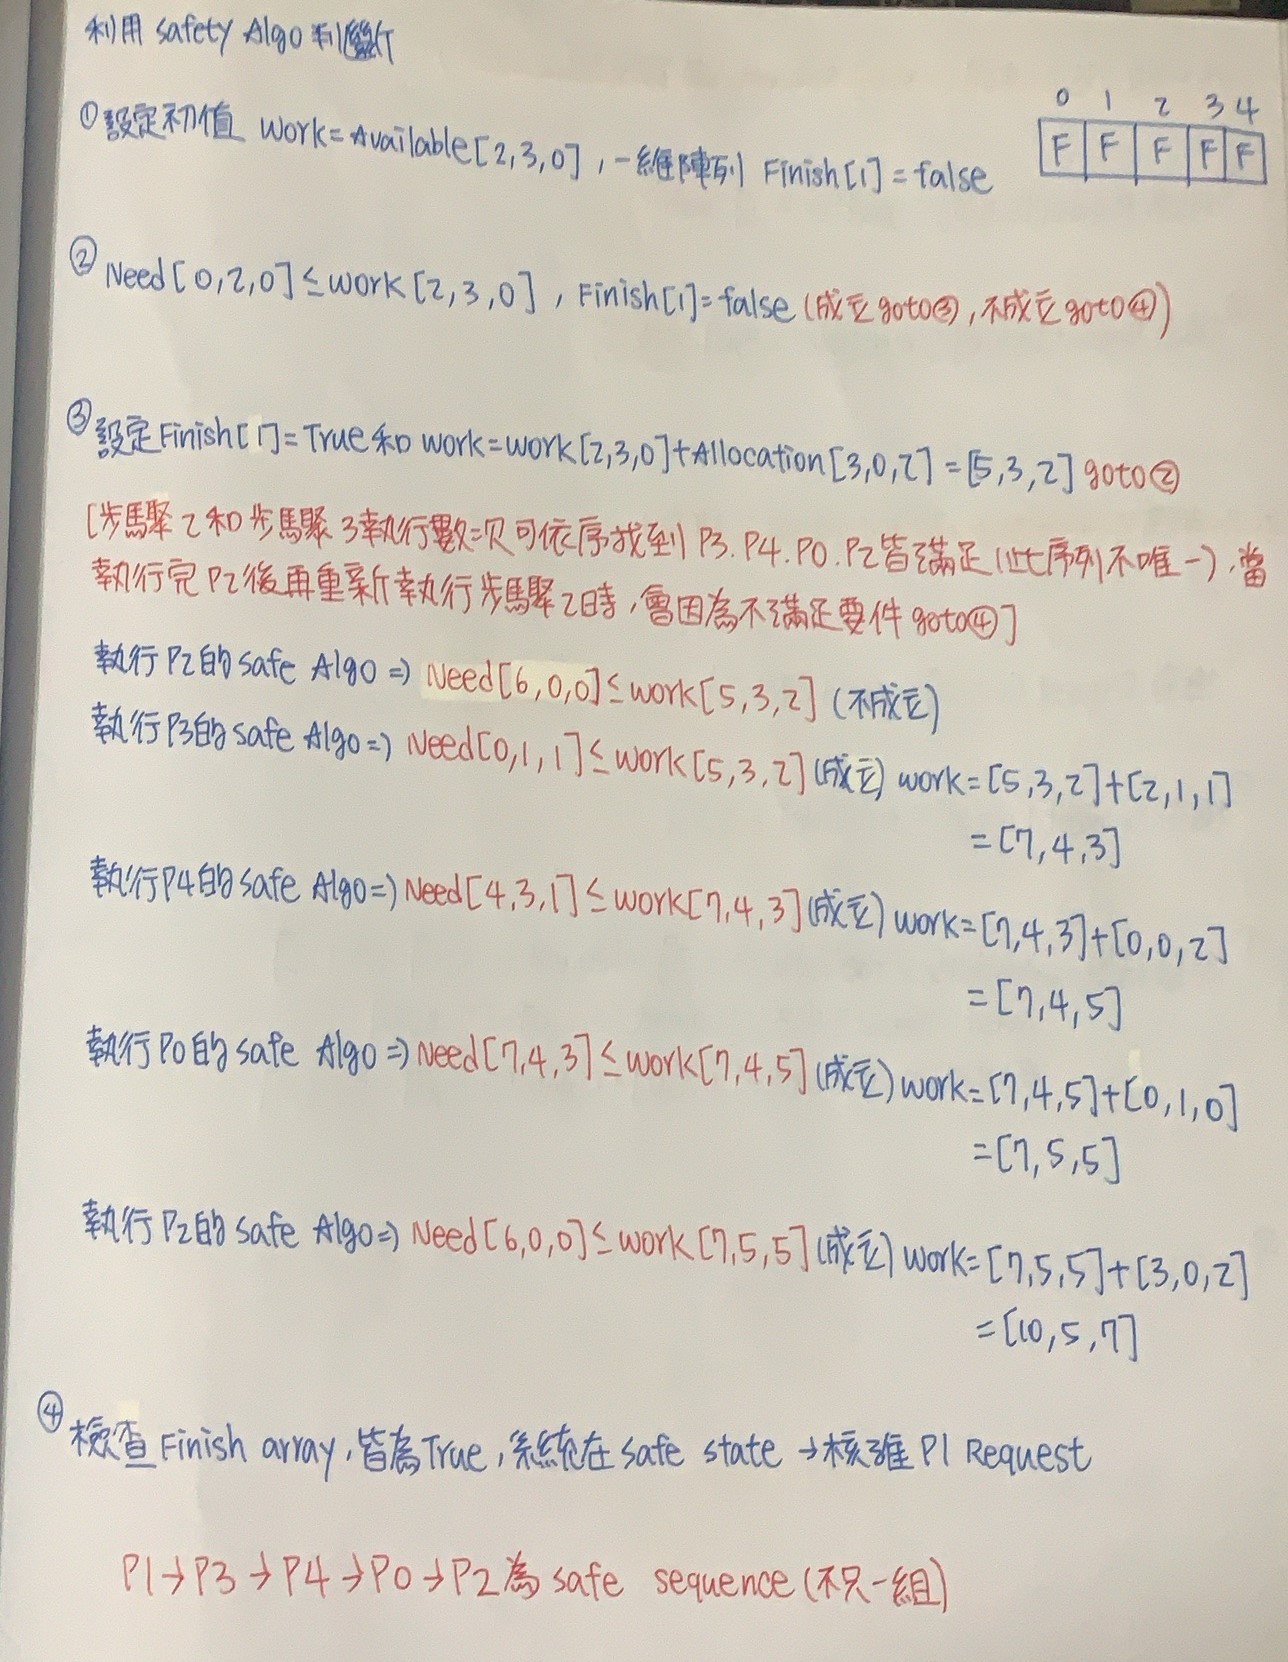 利用 Safety Algo 判斷
①設定初值 Work=Available[2,3,0],一維陣列 Finish[1]=false
0 1 2 3 4
F F F F F
②Need[0,2,0]≤Work[2,3,0], Finish[1]=false(成立goto③,不成立goto④)
③設定Finish[1]=True和Work=Work[2,3,0]+Allocation[3,0,2]=[5,3,2] goto②
[步驟2和步驟3執行數次可依序找到P3.P4.P0.P2皆滿足(此序列不唯一),當
執行完P2後再重新執行步驟2時,會因為不滿足要件goto④]
執行P2的Safe Algo⇒Need[6,0,0]≤Work[5,3,2](不成立)
執行P3的Safe Algo⇒Need[0,1,1]≤Work[5,3,2](成立) Work=[5,3,2]+[2,1,1]
=[7,4,3]
執行P4的Safe Algo⇒Need[4,3,1]≤Work[7,4,3](成立) Work=[7,4,3]+[0,0,2]
=[7,4,5]
執行P0的Safe Algo⇒Need[7,4,3]≤Work[7,4,5](成立)Work=[7,4,5]+[0,1,0]
=[7,5,5]
執行P2的Safe Algo⇒Need[6,0,0]≤Work[7,5,5](成立)Work=[7,5,5]+[3,0,2]
=[10,5,7]
④檢查Finish array,皆為True,系統在Safe state→核准P1 Request
P1→P3→P4→P0→P2為safe sequence(不只一組)